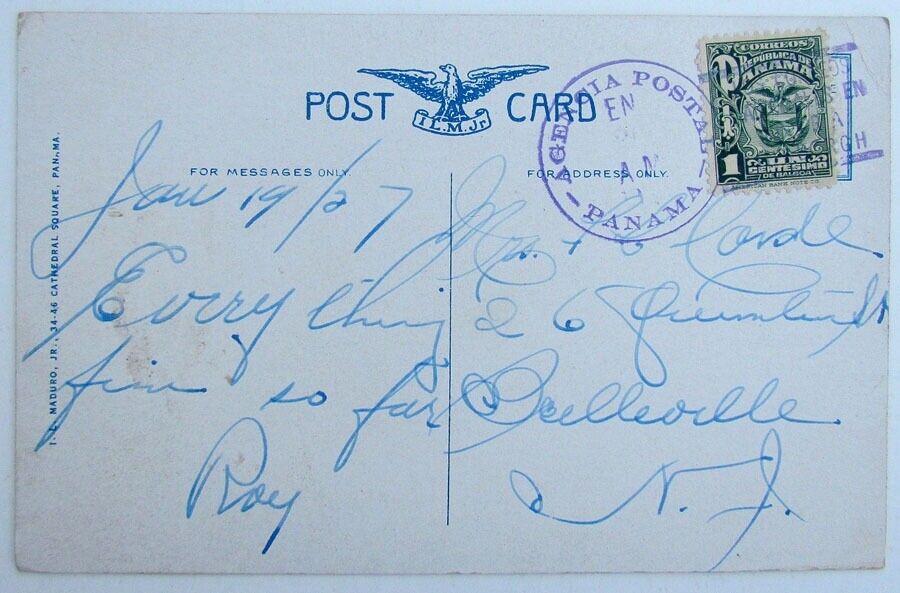 POST CARD
I. L. M. Jr.
FOR MESSAGES ONLY.
FOR ADDRESS ONLY.
I. L. MADURO, JR., 34-46 CATHEDRAL SQUARE, PAN., MA.
Jan 19/27
Every thing
fine so far
Roy
Mrs.
26 St
Belleville
N. J.
AGENCIA POSTAL
EN
PANAMA
CORREOS
REPÚBLICA DE
PANAMA
1 UN
CENTESIMO
DE BALBOA
AMERICAN BANK NOTE CO.
EN